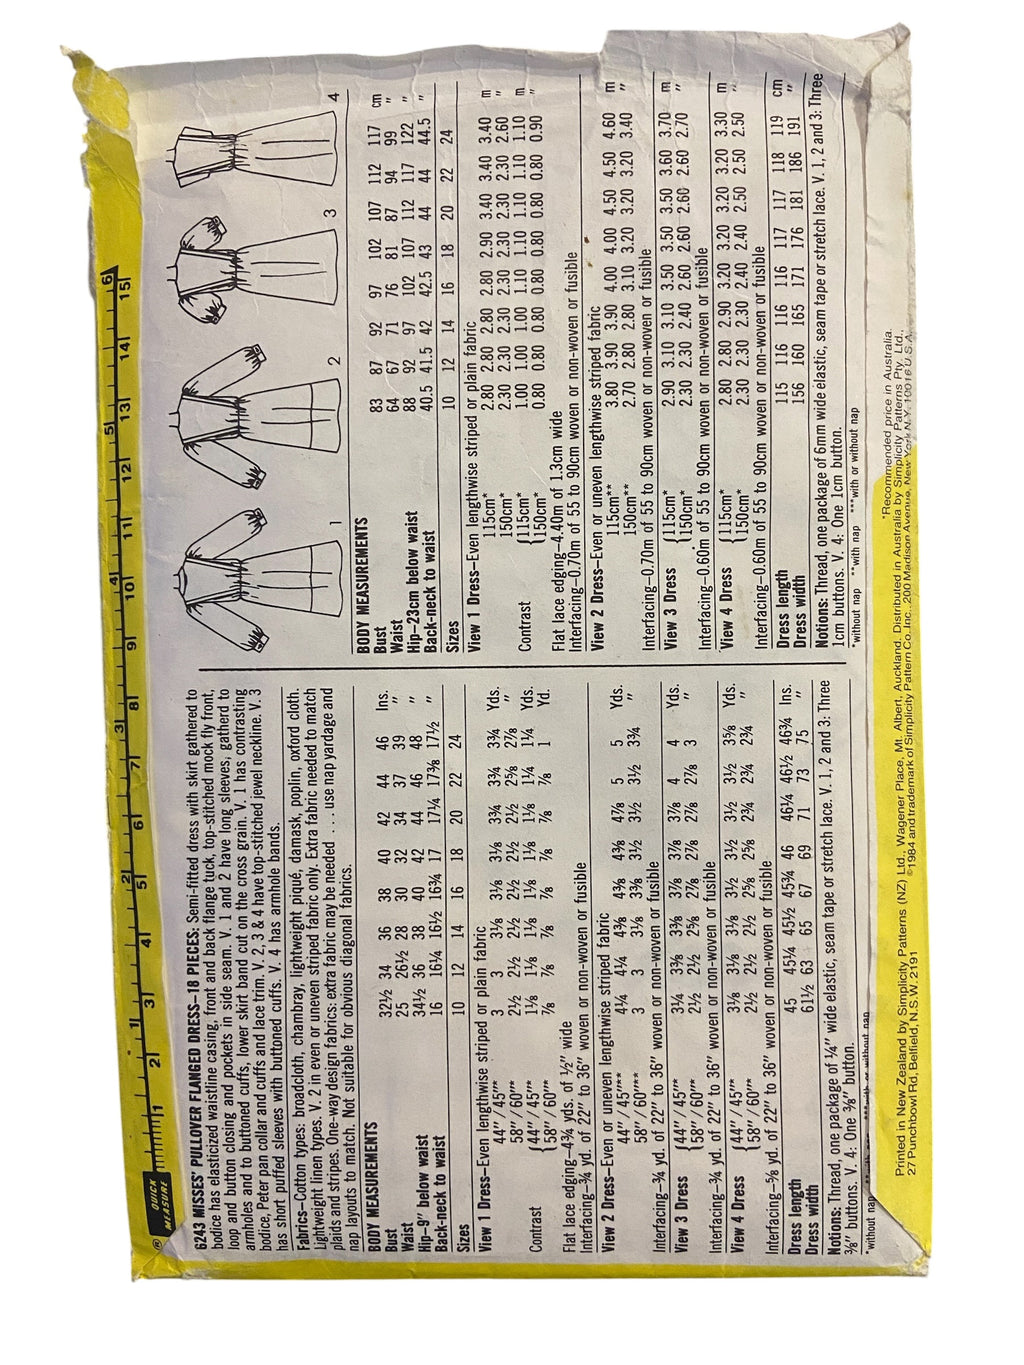 QUICK
MEASURE
®
1 2 3 4 5 6 7 8 9 10 11 12 13 14 15
1 2 3 4 5 6
6243 MISSES' PULLOVER FLANGED DRESS–18 PIECES: Semi-fitted dress with skirt gathered to
bodice has elasticized waistline casing, front and back flange tuck, top-stitched mock fly front,
loop and button closing and pockets in side seam. V. 1 and 2 have long sleeves, gatherd to
armholes and to buttoned cuffs, lower skirt band cut on the cross grain. V. 1 has contrasting
bodice, Peter pan collar and cuffs and lace trim. V. 2, 3 & 4 have top-stitched jewel neckline. V. 3
has short puffed sleeves with buttoned cuffs. V. 4 has armhole bands.
Fabrics–Cotton types: broadcloth, chambray, lightweight piqué, damask, poplin, oxford cloth.
Lightweight linen types. V. 2 in even or uneven striped fabric only. Extra fabric needed to match
plaids and stripes. One-way design fabrics: extra fabric may be needed . . . . use nap yardage and
nap layouts to match. Not suitable for obvious diagonal fabrics.
BODY MEASUREMENTS
Bust 32½ 34 36 38 40 42 44 46 Ins.
Waist 25 26½ 28 30 32 34 37 39 ″
Hip–9″ below waist 34½ 36 38 40 42 44 46 48 ″
Back-neck to waist 16 16¼ 16½ 16¾ 17 17¼ 17⅜ 17½ ″
Sizes 10 12 14 16 18 20 22 24
View 1 Dress–Even lengthwise striped or plain fabric
44″ / 45″* 3 3 3⅛ 3⅛ 3⅛ 3¾ 3¾ 3¾ Yds.
58″ / 60″* 2½ 2½ 2½ 2½ 2½ 2½ 2⅝ 2⅞ ″
Contrast {44″ / 45″* 1⅛ 1⅛ 1⅛ 1⅛ 1⅛ 1⅛ 1¼ 1¼ Yds.
{58″ / 60″* ⅞ ⅞ ⅞ ⅞ ⅞ ⅞ ⅞ 1 Yd.
Flat lace edging–4¾ yds. of ½″ wide
Interfacing–¾ yd. of 22″ to 36″ woven or non-woven or fusible
View 2 Dress–Even or uneven lengthwise striped fabric
44″ / 45″** 4¼ 4¼ 4⅜ 4⅜ 4⅜ 4⅞ 5 5 Yds.
58″ / 60″** 3 3 3⅛ 3⅜ 3½ 3½ 3½ 3¾ ″
Interfacing–¾ yd. of 22″ to 36″ woven or non-woven or fusible
View 3 Dress {44″ / 45″* 3¼ 3⅜ 3⅜ 3⅞ 3⅞ 3⅞ 4 4 Yds.
{58″ / 60″* 2½ 2½ 2⅝ 2⅞ 2⅞ 2⅞ 2⅞ 3 ″
Interfacing–¾ yd. of 22″ to 36″ woven or non-woven or fusible
View 4 Dress {44″ / 45″* 3⅛ 3⅛ 3⅛ 3½ 3½ 3½ 3½ 3⅝ Yds.
{58″ / 60″* 2½ 2½ 2½ 2⅝ 2⅝ 2¾ 2¾ 2¾ ″
Interfacing–⅝ yd. of 22″ to 36″ woven or non-woven or fusible
Dress length 45 45¼ 45½ 45¾ 46 46¼ 46½ 46¾ Ins.
Dress width 61½ 63 65 67 69 71 73 75 ″
Notions: Thread, one package of ¼″ wide elastic, seam tape or stretch lace. V. 1, 2 and 3: Three
⅜″ buttons. V. 4: One ⅜″ button.
*without nap
1 2 3 4
BODY MEASUREMENTS
Bust 83 87 92 97 102 107 112 117 cm
Waist 64 67 71 76 81 87 94 99 ″
Hip–23cm below waist 88 92 97 102 107 112 117 122 ″
Back-neck to waist 40.5 41.5 42 42.5 43 44 44 44.5 ″
Sizes 10 12 14 16 18 20 22 24
View 1 Dress–Even lengthwise striped or plain fabric
115cm* 2.80 2.80 2.80 2.80 2.90 3.40 3.40 3.40 m
150cm* 2.30 2.30 2.30 2.30 2.30 2.30 2.30 2.60 ″
Contrast {115cm* 1.00 1.00 1.00 1.10 1.10 1.10 1.10 1.10 m
{150cm* 0.80 0.80 0.80 0.80 0.80 0.80 0.80 0.90 ″
Flat lace edging–4.40m of 1.3cm wide
Interfacing–0.70m of 55 to 90cm woven or non-woven or fusible
View 2 Dress–Even or uneven lengthwise striped fabric
115cm** 3.80 3.90 3.90 4.00 4.00 4.50 4.50 4.60 m
150cm** 2.70 2.80 2.80 3.10 3.20 3.20 3.20 3.40 ″
Interfacing–0.70m of 55 to 90cm woven or non-woven or fusible
View 3 Dress {115cm* 2.90 3.10 3.10 3.50 3.50 3.50 3.60 3.70 m
{150cm* 2.30 2.30 2.40 2.60 2.60 2.60 2.60 2.70 ″
Interfacing–0.60m of 55 to 90cm woven or non-woven or fusible
View 4 Dress {115cm* 2.80 2.80 2.90 3.20 3.20 3.20 3.20 3.30 m
{150cm* 2.30 2.30 2.30 2.40 2.40 2.50 2.50 2.50 ″
Interfacing–0.60m of 55 to 90cm woven or non-woven or fusible
Dress length 115 116 116 116 117 117 118 119 cm
Dress width 156 160 165 171 176 181 186 191 ″
Notions: Thread, one package of 6mm wide elastic, seam tape or stretch lace. V. 1, 2 and 3: Three
1cm buttons. V. 4: One 1cm button.
*without nap **with nap ***with or without nap
*Recommended price in Australia.
Printed in New Zealand by Simplicity Patterns (NZ) Ltd., Wagener Place, Mt. Albert, Auckland. Distributed in Australia by Simplicity Patterns Pty. Ltd.,
27 Punchbowl Rd, Belfield, N.S.W. 2191 ©1984 and trademark of Simplicity Pattern Co. Inc., 200 Madison Avenue, New York N.Y. 10016 U.S.A.